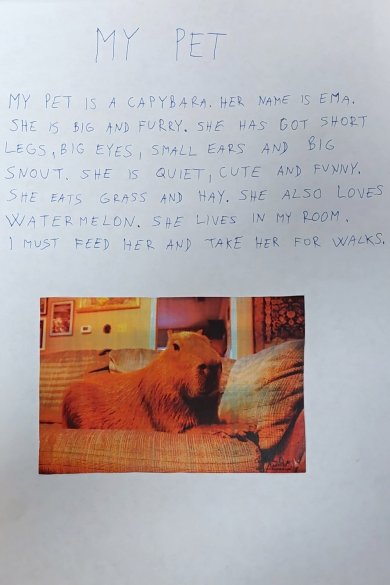 MY PET
MY PET IS A CAPYBARA. HER NAME IS EMA.
SHE IS BIG AND FURRY. SHE HAS GOT SHORT
LEGS, BIG EYES, SMALL EARS AND BIG
SNOUT. SHE IS QUIET, CUTE AND FUNNY.
SHE EATS GRASS AND HAY. SHE ALSO LOVES
WATERMELON. SHE LIVES IN MY ROOM.
I MUST FEED HER AND TAKE HER FOR WALKS.